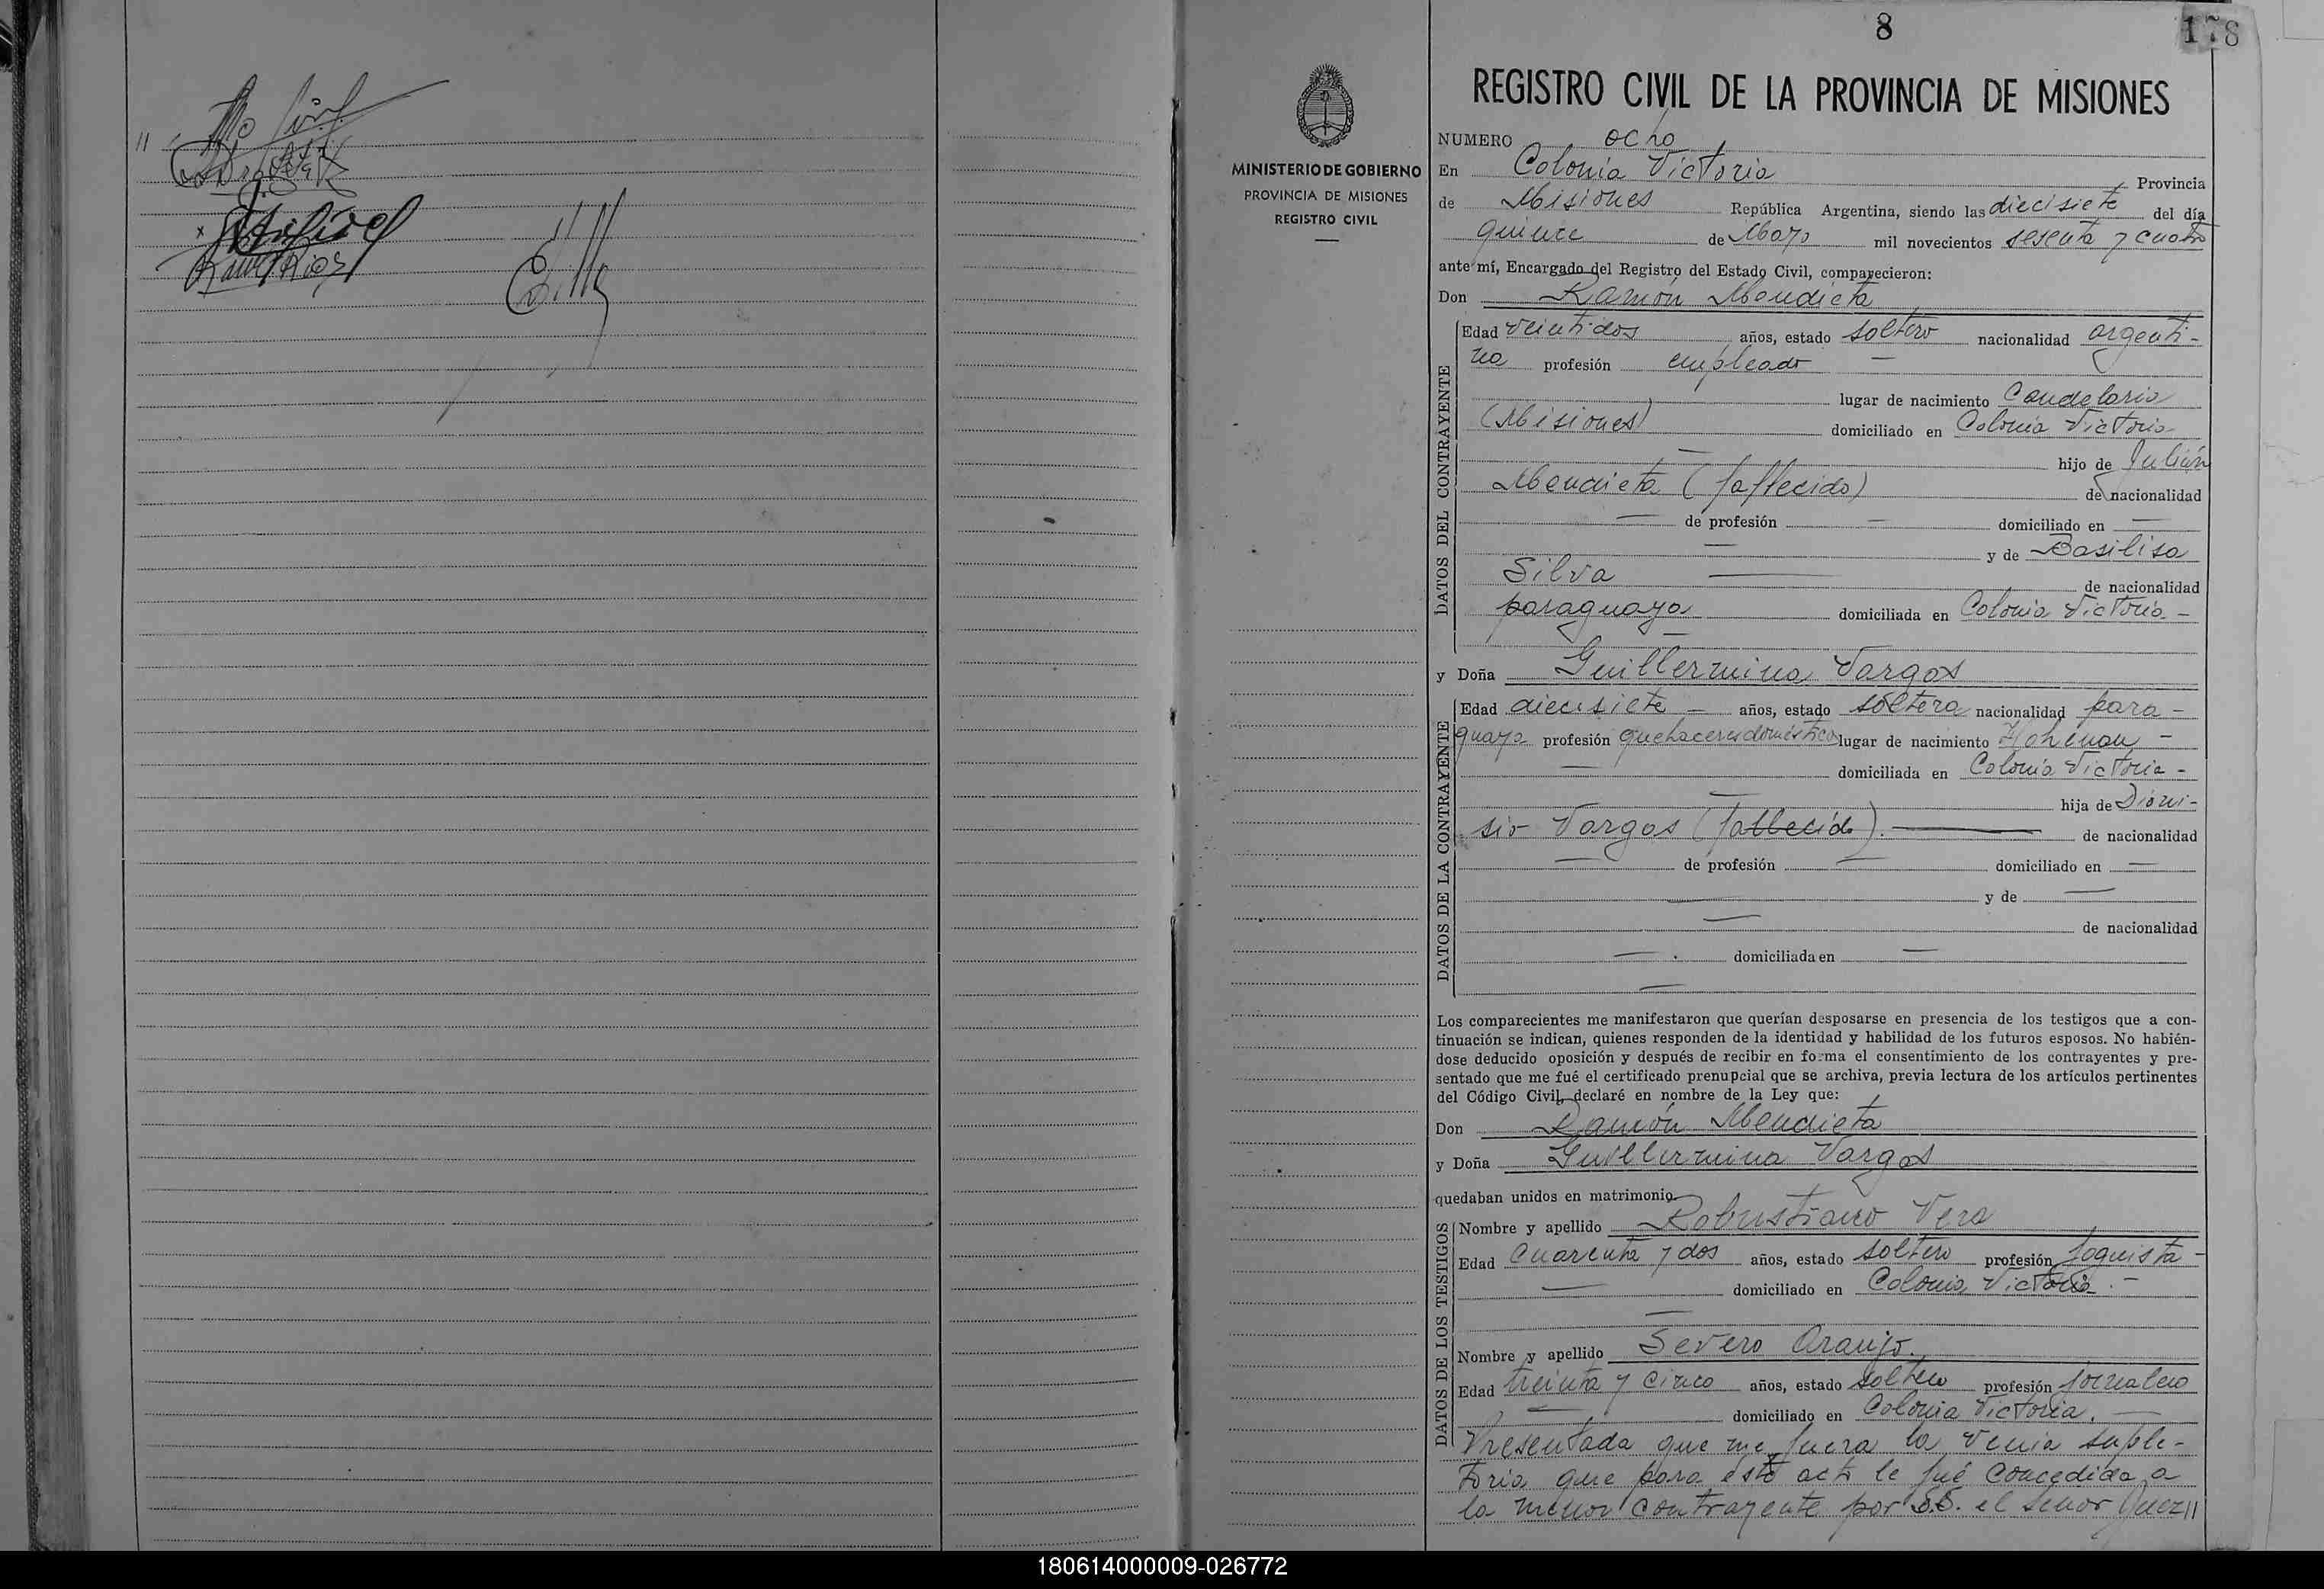 8
178
REGISTRO CIVIL DE LA PROVINCIA DE MISIONES
MINISTERIO DE GOBIERNO
PROVINCIA DE MISIONES
REGISTRO CIVIL
NUMERO ocho
En Colonia Victoria Provincia
de Misiones República Argentina, siendo las diecisiete del día
quince de Mayo mil novecientos sesenta y cuatro
ante mí, Encargado del Registro del Estado Civil, comparecieron:
Don Ramón Mendieta
DATOS DEL CONTRAYENTE
Edad veintidos años, estado soltero nacionalidad argenti-
na profesión empleado —
lugar de nacimiento Candelaria
(Misiones) domiciliado en Colonia Victoria
— hijo de Julián
Mendieta (fallecido) de nacionalidad
— de profesión — domiciliado en —
— y de Basilisa
Silva — de nacionalidad
paraguaya domiciliada en Colonia Victoria. -
—
y Doña Guillermina Vargas
DATOS DE LA CONTRAYENTE
Edad diecisiete — años, estado soltera nacionalidad para-
guaya profesión quehaceres domésticos lugar de nacimiento Hohenau -
— domiciliada en Colonia Victoria -
— hija de Dioni-
sio Vargas (fallecido). — de nacionalidad
— de profesión — domiciliado en —
— y de —
— de nacionalidad
— . domiciliada en —
—
Los comparecientes me manifestaron que querían desposarse en presencia de los testigos que a con-
tinuación se indican, quienes responden de la identidad y habilidad de los futuros esposos. No habién-
dose deducido oposición y después de recibir en forma el consentimiento de los contrayentes y pre-
sentado que me fué el certificado prenupcial que se archiva, previa lectura de los artículos pertinentes
del Código Civil, declaré en nombre de la Ley que:
Don Ramón Mendieta
y Doña Guillermina Vargas
quedaban unidos en matrimonio.
DATOS DE LOS TESTIGOS
Nombre y apellido Robustiano Vera
Edad cuarenta y dos años, estado soltero profesión foguista -
— domiciliado en Colonia Victoria. -
—
Nombre y apellido Severo Araujo.
Edad treinta y cinco años, estado soltero profesión jornalero
— domiciliado en Colonia Victoria. —
Presentada que me fuera la venia suple-
toria que para éste acto le fué concedida a
la menor contrayente por S.S. el señor Juez//
180614000009-026772